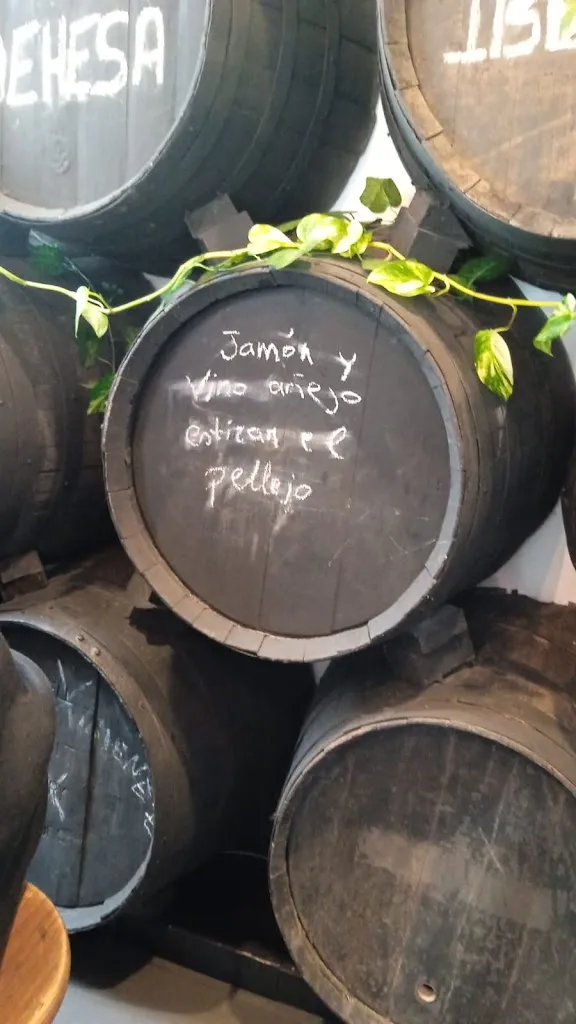 DEHESA
Jamón y
vino añejo
estiran el
pellejo